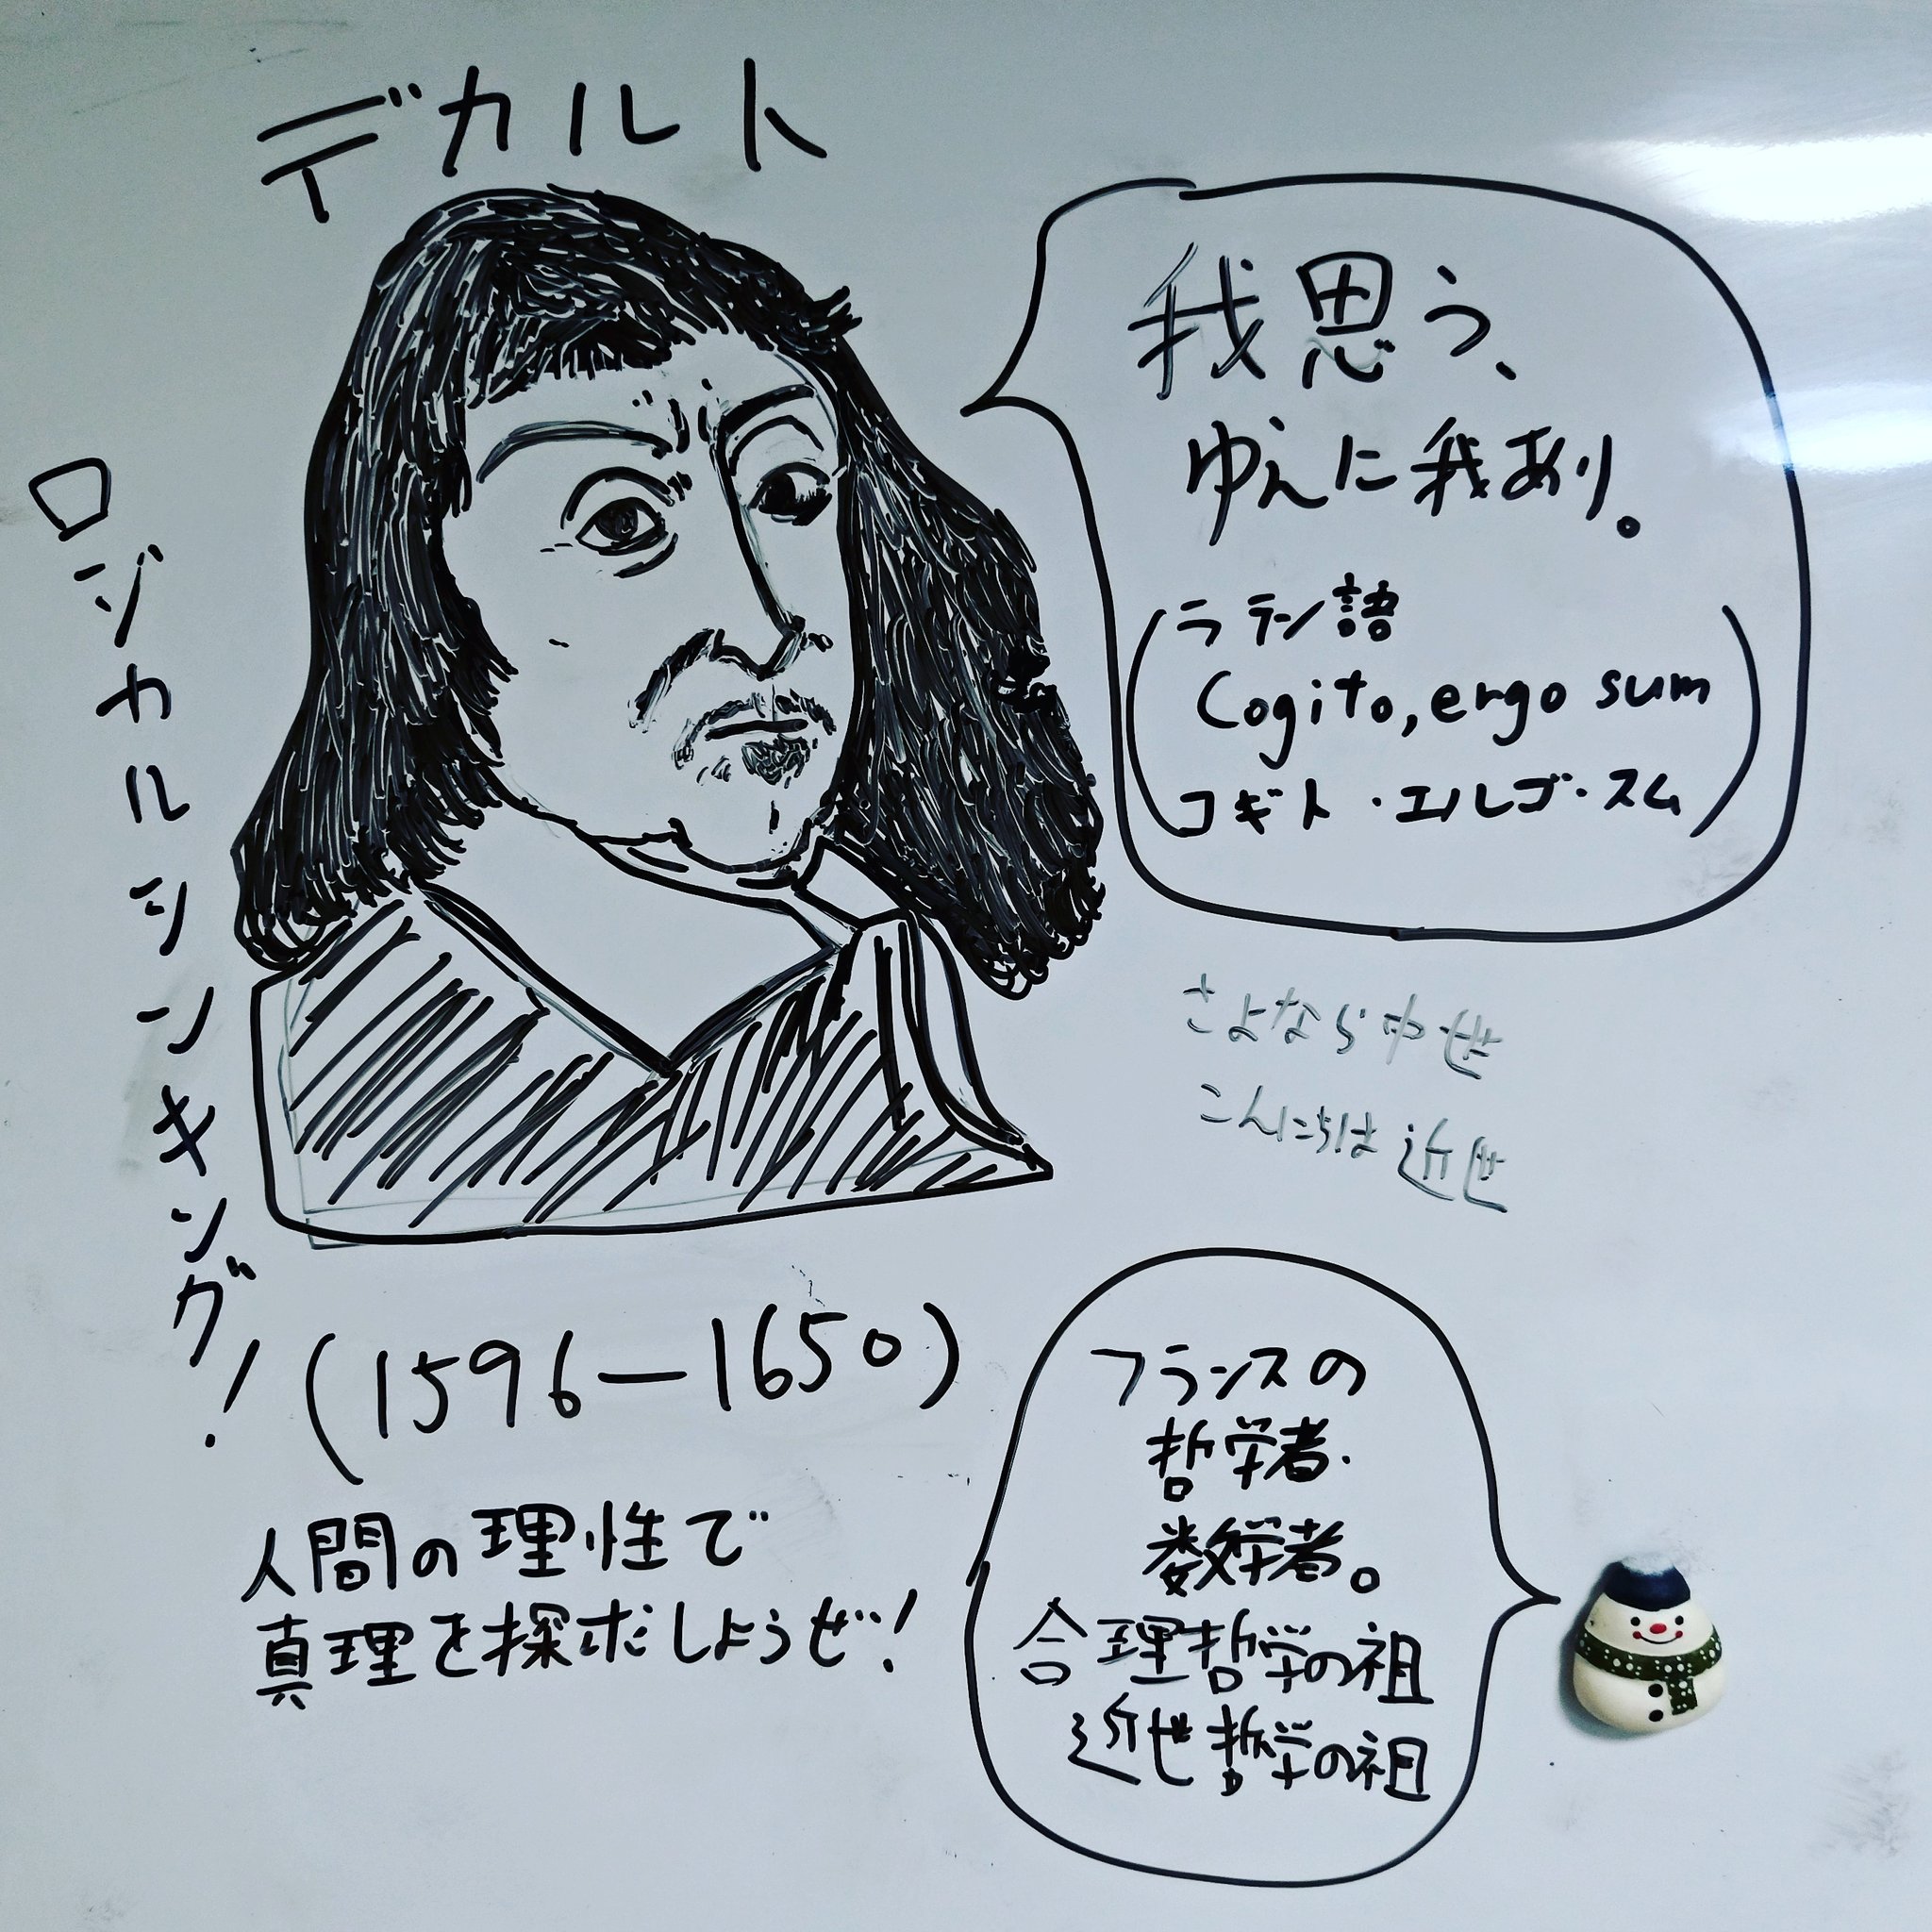 デカルト
ロジカルシンキング！
我思う、
ゆえに我あり。
(ラテン語
Cogito, ergo sum
コギト・エルゴ・スム)
さよなら中世
こんにちは近世
(1596—1650)
人間の理性で
真理を探求しようぜ！
フランスの
哲学者・
数学者。
合理哲学の祖
近世哲学の祖